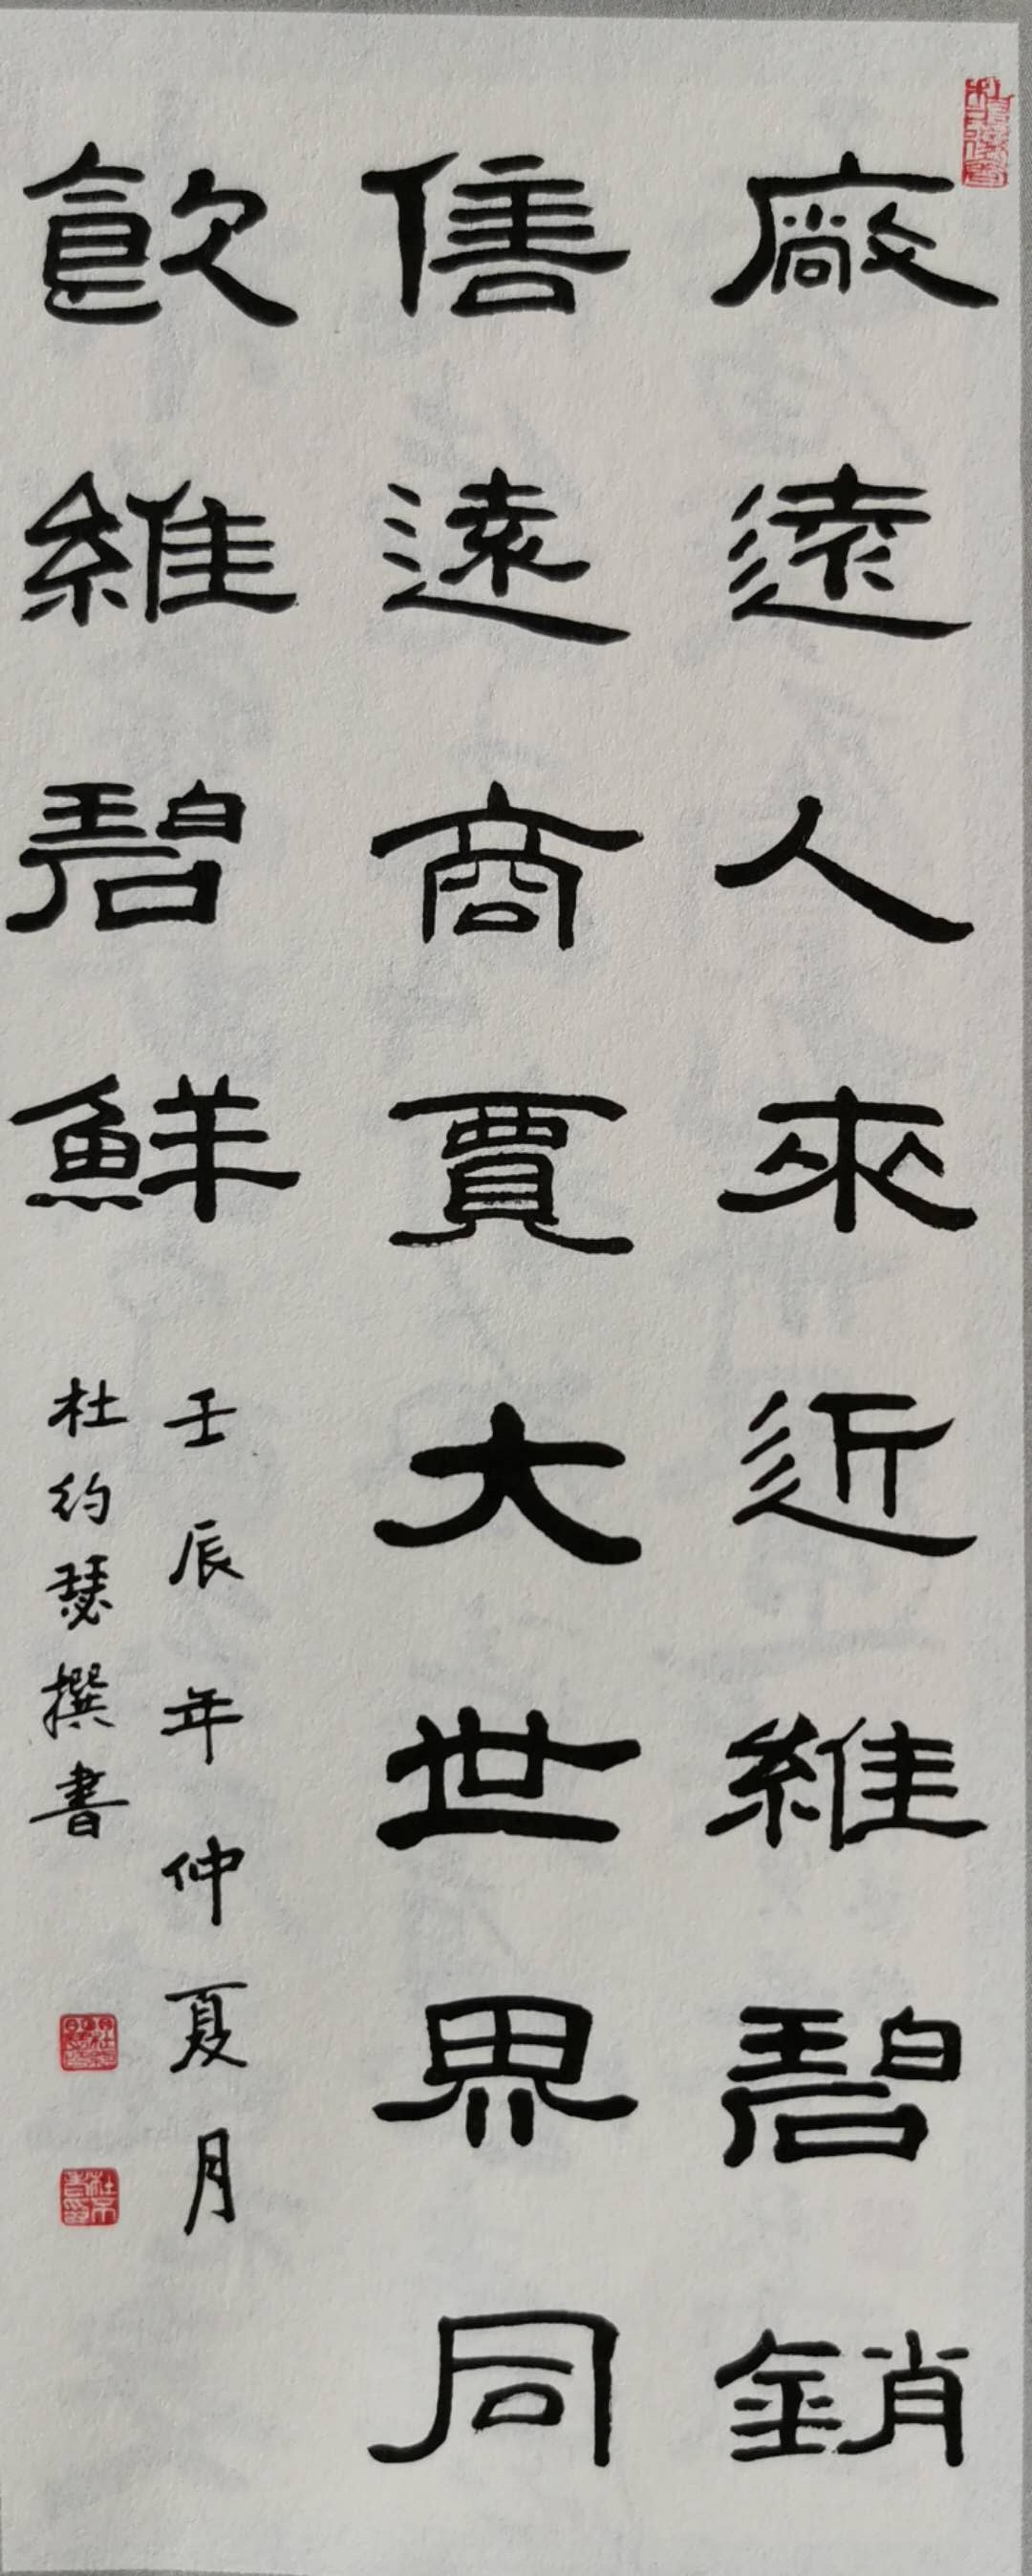 廠遠人來近維碧銷
售遠商賈大世界同
飲維碧鮮
壬辰年仲夏月
杜約瑟撰書